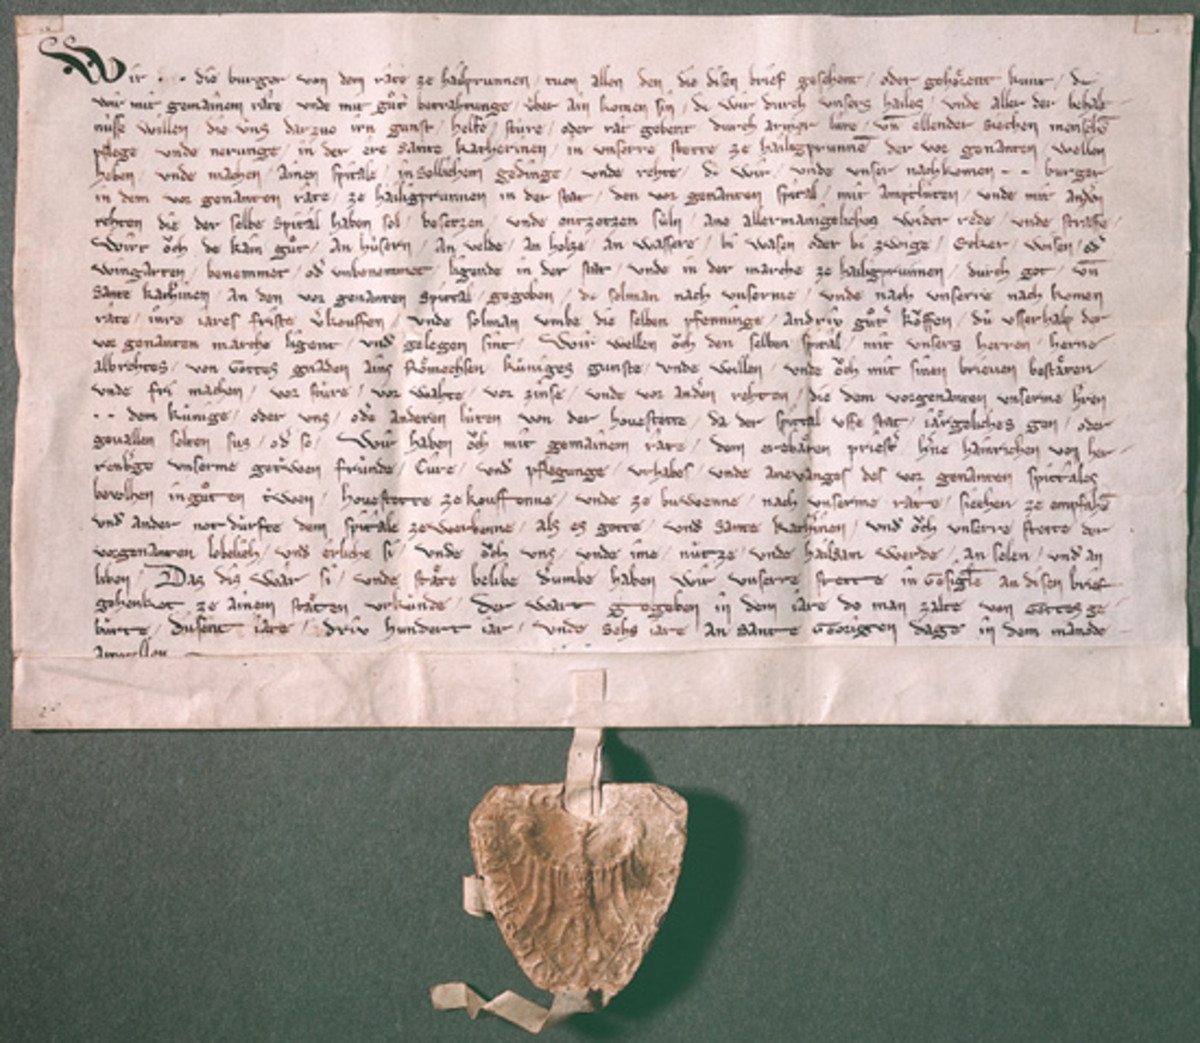 Wir · · die burger von dem rate ze hailprunnen / tuon allen den die disen brief gesehent / oder gehörent kunt / dc
wir mit gemainem rate / vnde mit gůter betrahtunge / vber ain komen sin / dc wir durch vnsers hailes / vnde aller der behalt
nüsse willen / die vns darzuo irn gunst / helfe / stüre / oder rat gebent / durch armer lüte / vn̄ ellender siechen menschē
pflege / vnde nerunge / in der ere Sante Katherinen / in vnserre stette ze hailigprunnē der vor genanten / wellen
heben / vnde machen / ainen spitale / in sollichem gedinge / vnde rehte / dc wir / vnde vnser nachkomen · · burger
in dem vor genanten rate / ze hailigprunnen in der stat / den vor genanten spital / mit amptlüten / vnde mit andern
rehten die der selbe spital haben sol / besetzen / vnde entzetzen süln / ane allermaingeliches wider rede / vnde straffe /
Wirt och de kain gůt / an hüsern / an velde / an holze / an wassere / bi wasen oder bi zwige / Ecker / wisen / od̾
wingarten / benemmet / od̾ vnbenemmet / ligende in der stat / vnde in der marche ze hailigprunnen / durch got / vn̄
Sante kath̾inen / an den vor genanten spital / gegeben / dc solman nach vnserme / vnde nach vnserre nach komen
rate / inre iares friste v̾kouffen / vnde solman vmbe die selben pfenninge / andriv gůt̾ köffen / dü vsserhalp der
vor genanten marche ligent / vnd̾ gelegen sint / Wir wellen öch den selben spital / mit vnsers herren / herre
albrehtes / von Gottes gnaden ains Römschen / küniges gunste / vnde willen / vnde öch mit sinen brieuen bestäten
vnde fri machen / vor stüre / vor wahte / vor zinse / vnde vor anden̾ rehten / die dem vorgenanten vnserme h̾ren
· · dem künige / oder vns / ode anderen lüten von der houestette / da der spittal vffe stat / iärgeliches gen / oder
geuallen solten sus / od̾ so / Wir haben öch mit gemainem rate / dem erebären priest̾ / h̾ne hainrichen von her
renbge vnserme getrwen fründe / Cure / vnd̾ pflegunge / vrhabes / vnde aneuanges des vor genanten spittales
beuolhen in gůten trwen / houestette ze kouffenne / vnde ze buwenne / nach vnserme rate / siechen ze empfahē
vnd̾ ander notdürfte dem spitale ze werbenne / als es gotte / vnd̾ sante kath̾inen / vnd̾ öch vnserre stette der
vorgenanten lobelich / vnd̾ erliche si / vnde öch vns / vnde ime / nütze / vnde hailsam werde / an selen / vnd̾ an
libon / Daz dis war si / vnde stäte belibe / dr̾umbe haben wir vnserre stette in Gesigle an disen brief
gehenket / ze ainem stäten vrkünde / Der wart gegeben in dem iare do man zalte von Gottes ge
bürte / dusent iare / driv hundert iar / vnde Sehs iare / an Sante Georigen dage in dem manode
Aprellen